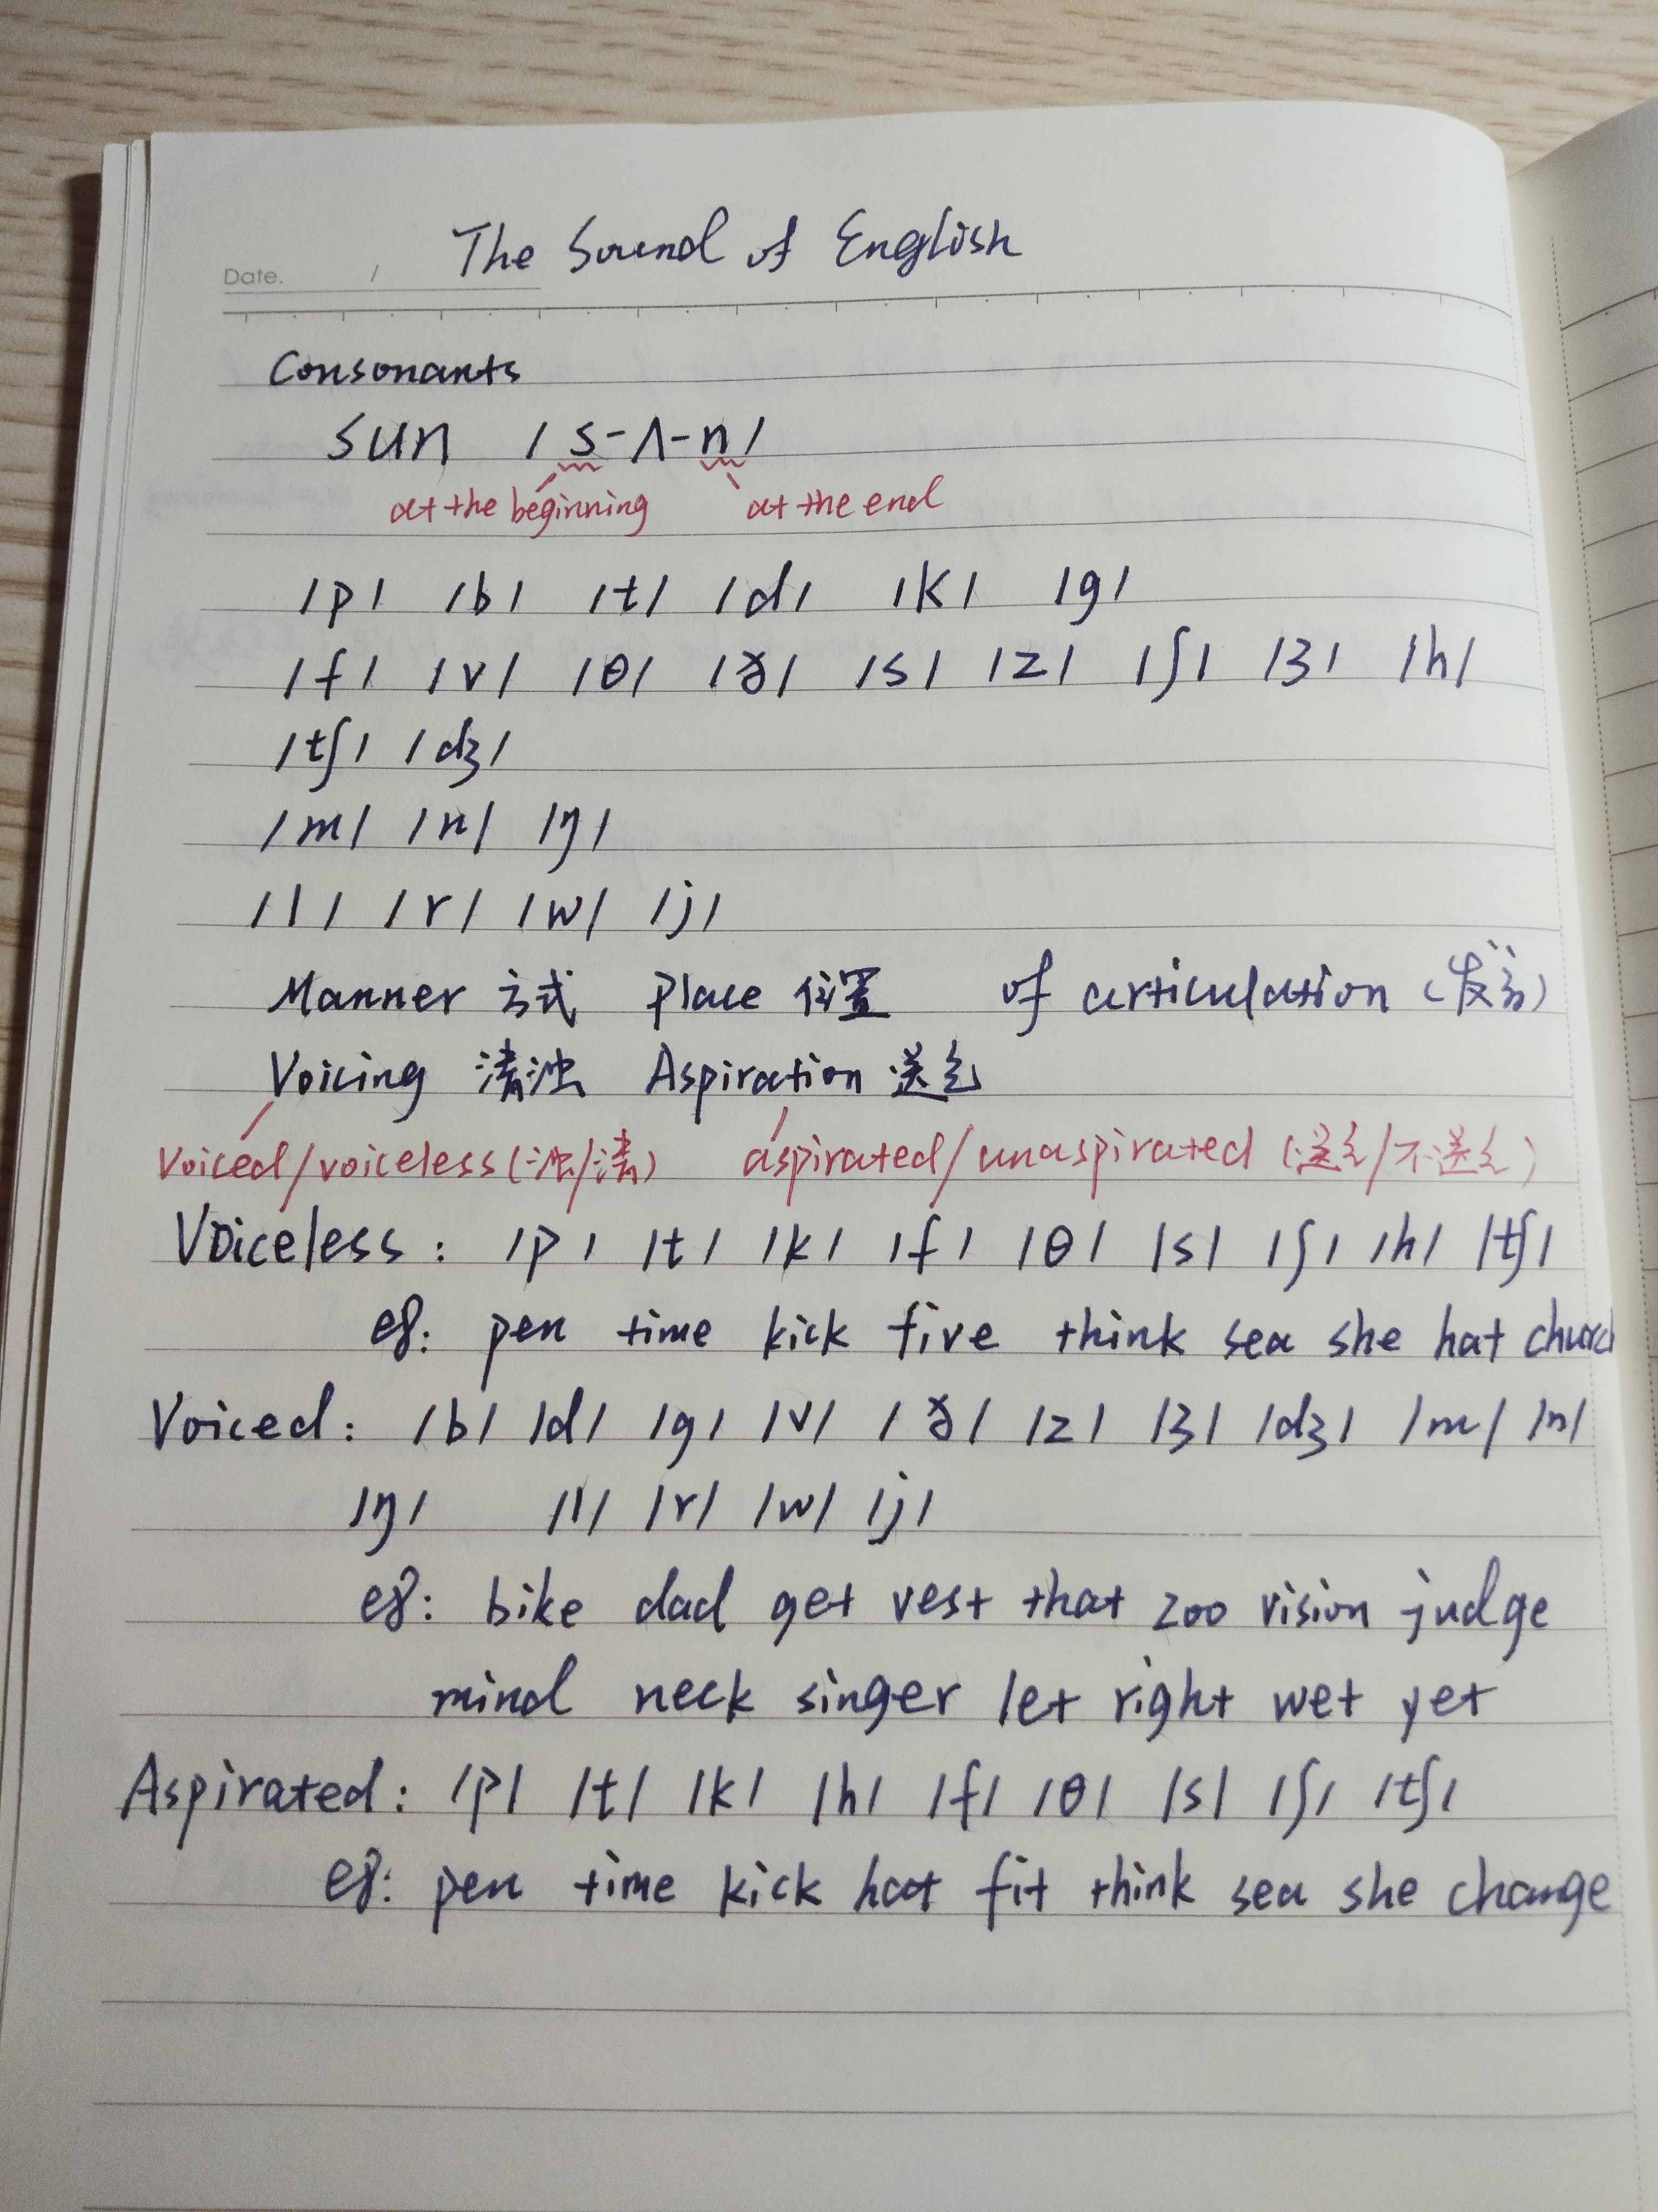 The Sound of English
Date. /
Consonants
sun / s-ʌ-n/
at the beginning at the end
/p/ /b/ /t/ /d/ /k/ /g/
/f/ /v/ /θ/ /ð/ /s/ /z/ /ʃ/ /ʒ/ /h/
/tʃ/ /dʒ/
/m/ /n/ /ŋ/
/l/ /r/ /w/ /j/
Manner 方式 Place 位置 of articulation (发音)
Voicing 清浊 Aspiration 送气
Voiced/voiceless(浊/清) aspirated/unaspirated (送气/不送气)
Voiceless: /p/ /t/ /k/ /f/ /θ/ /s/ /ʃ/ /h/ /tʃ/
eg: pen time kick five think sea she hat church
Voiced: /b/ /d/ /g/ /v/ /ð/ /z/ /ʒ/ /dʒ/ /m/ /n/
/ŋ/ /l/ /r/ /w/ /j/
eg: bike dad get vest that zoo vision judge
mind neck singer let right wet yet
Aspirated: /p/ /t/ /k/ /h/ /f/ /θ/ /s/ /ʃ/ /tʃ/
eg: pen time kick hat fit think sea she change